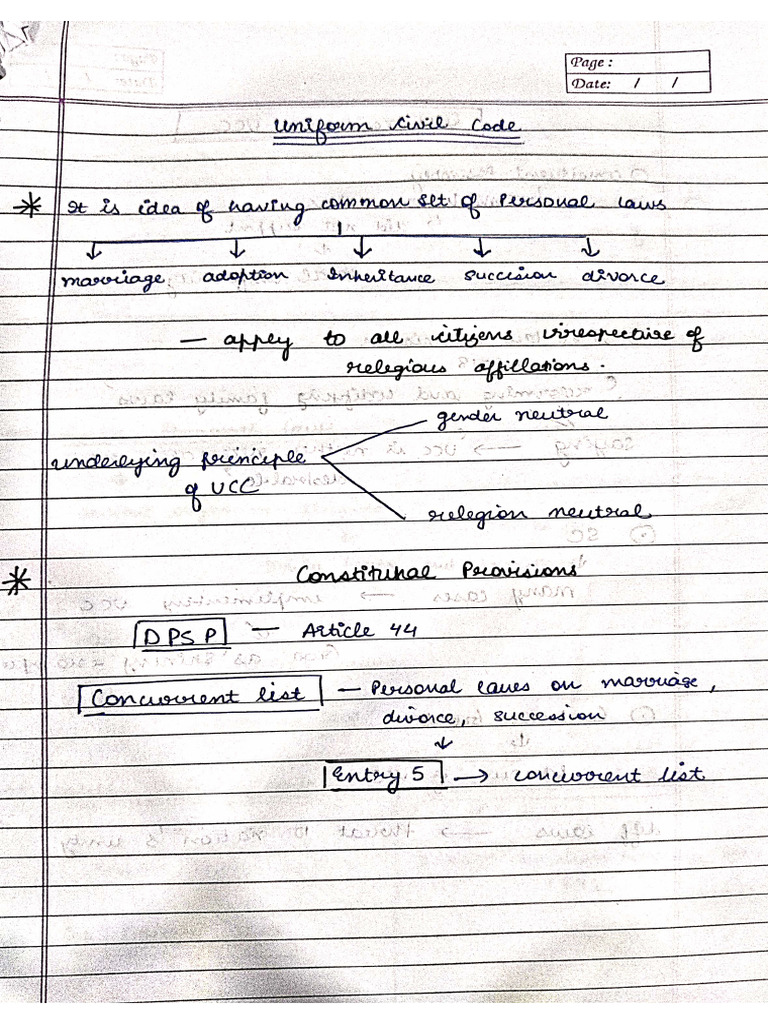 Page :
Date: / /
Uniform Civil Code
* It is idea of having common set of Personal laws
marriage adoption Inheritance succision divorce
— apply to all citizens irrespective of
relegious affillations.
gender neutral
underlying principle
of UCC
relegion neutral
* Constitunal Provisions
DPSP — Article 44
Concurrent list — Personal laws on marriage,
divorce, succession
Entry 5 → concurrent list